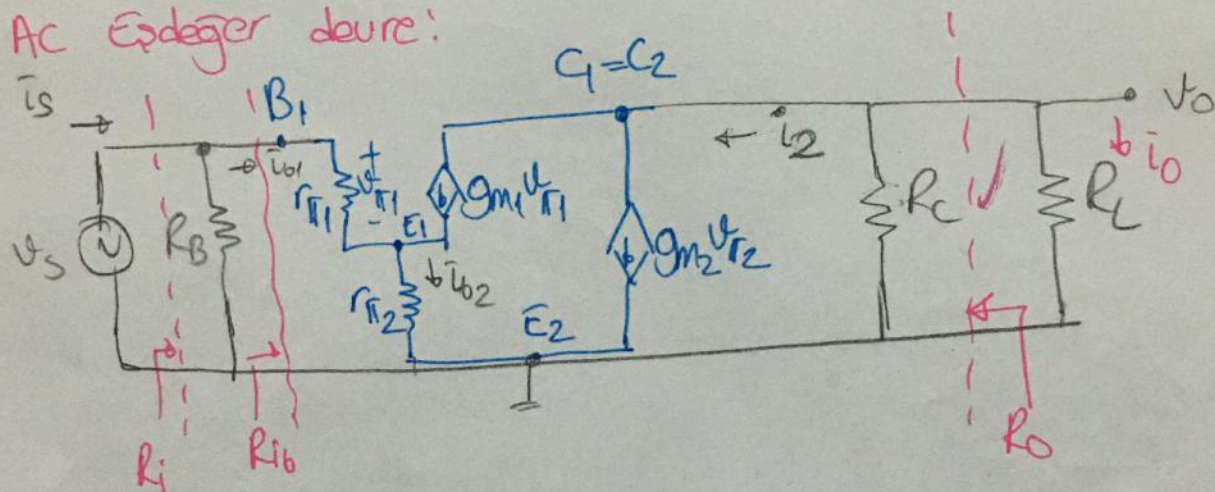 AC Eşdeğer devre:
is
B1
C1=C2
vo
ib1
+
rπ1
vπ1
-
gm1vπ1
i2
io
vs
RB
E1
ib2
gm2vπ2
RC
RL
rπ2
E2
Ri
Rib
Ro